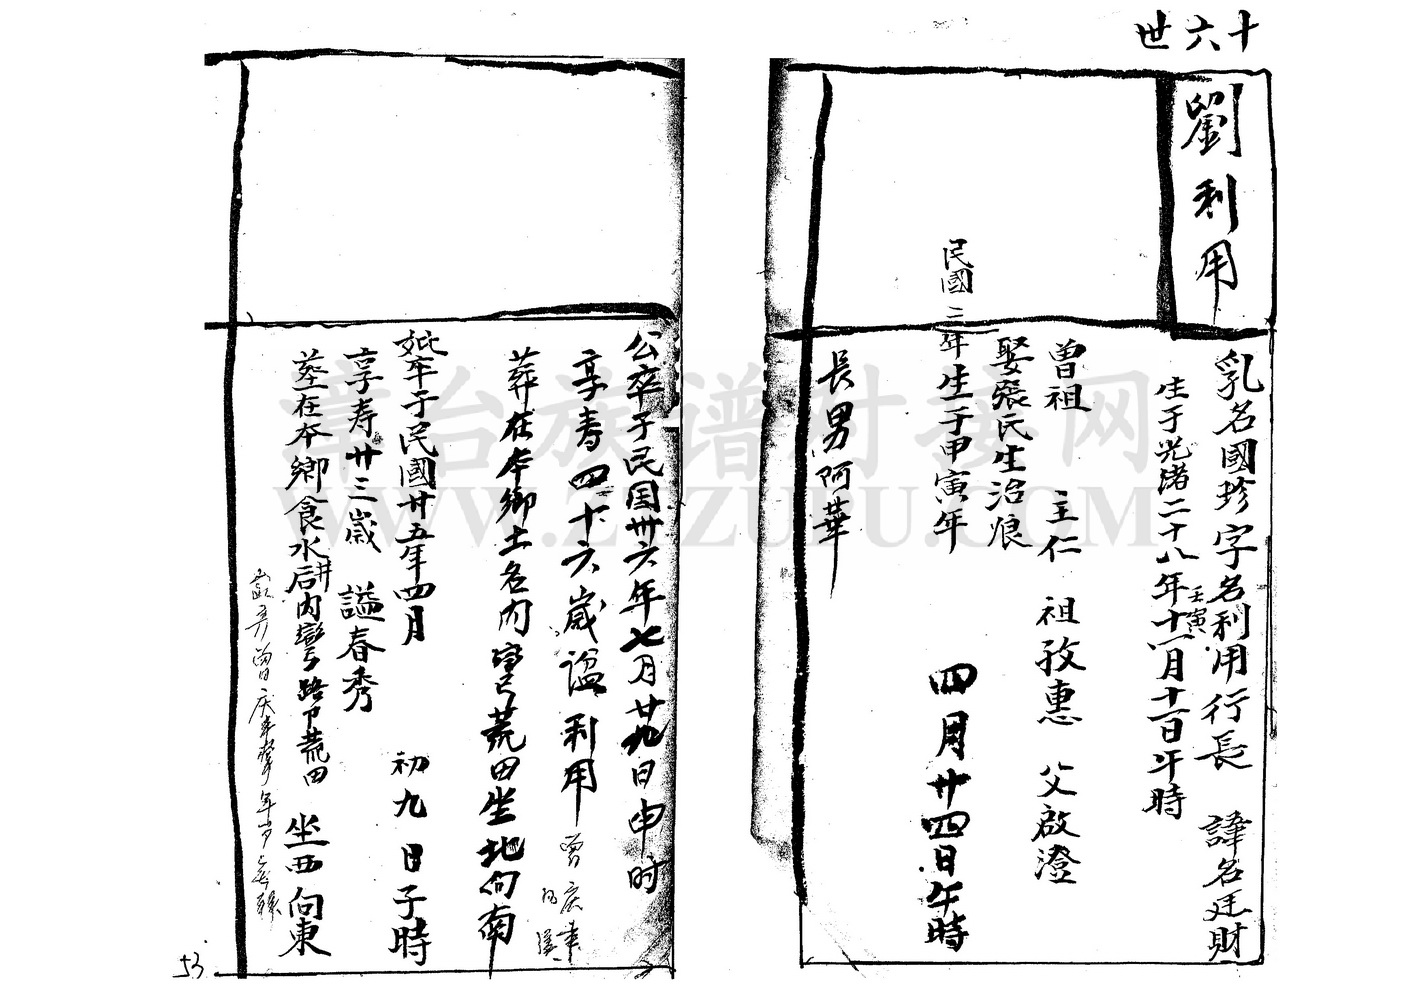 十六世
劉利用
乳名國珍字名利用行長 諱名廷財
生于光緒二十八年十一月十一日午時
壬寅
曾祖 主仁 祖孜惠 父啟澄
娶張氏生治烺
民國二年生于甲寅年 四月廿四日午時
長男阿華
公卒于民国卅六年七月廿九日申时
享寿四十六歲謚利用
葬在本鄉土名内弯荒田坐北向南
妣卒于民國廿五年四月 初九日子時
享寿廿三歲 謚春秀
塟在本鄉食水井后内彎路下荒田 坐西向東
53
章台族谱对接网
WWW.ZTZUPU.COM